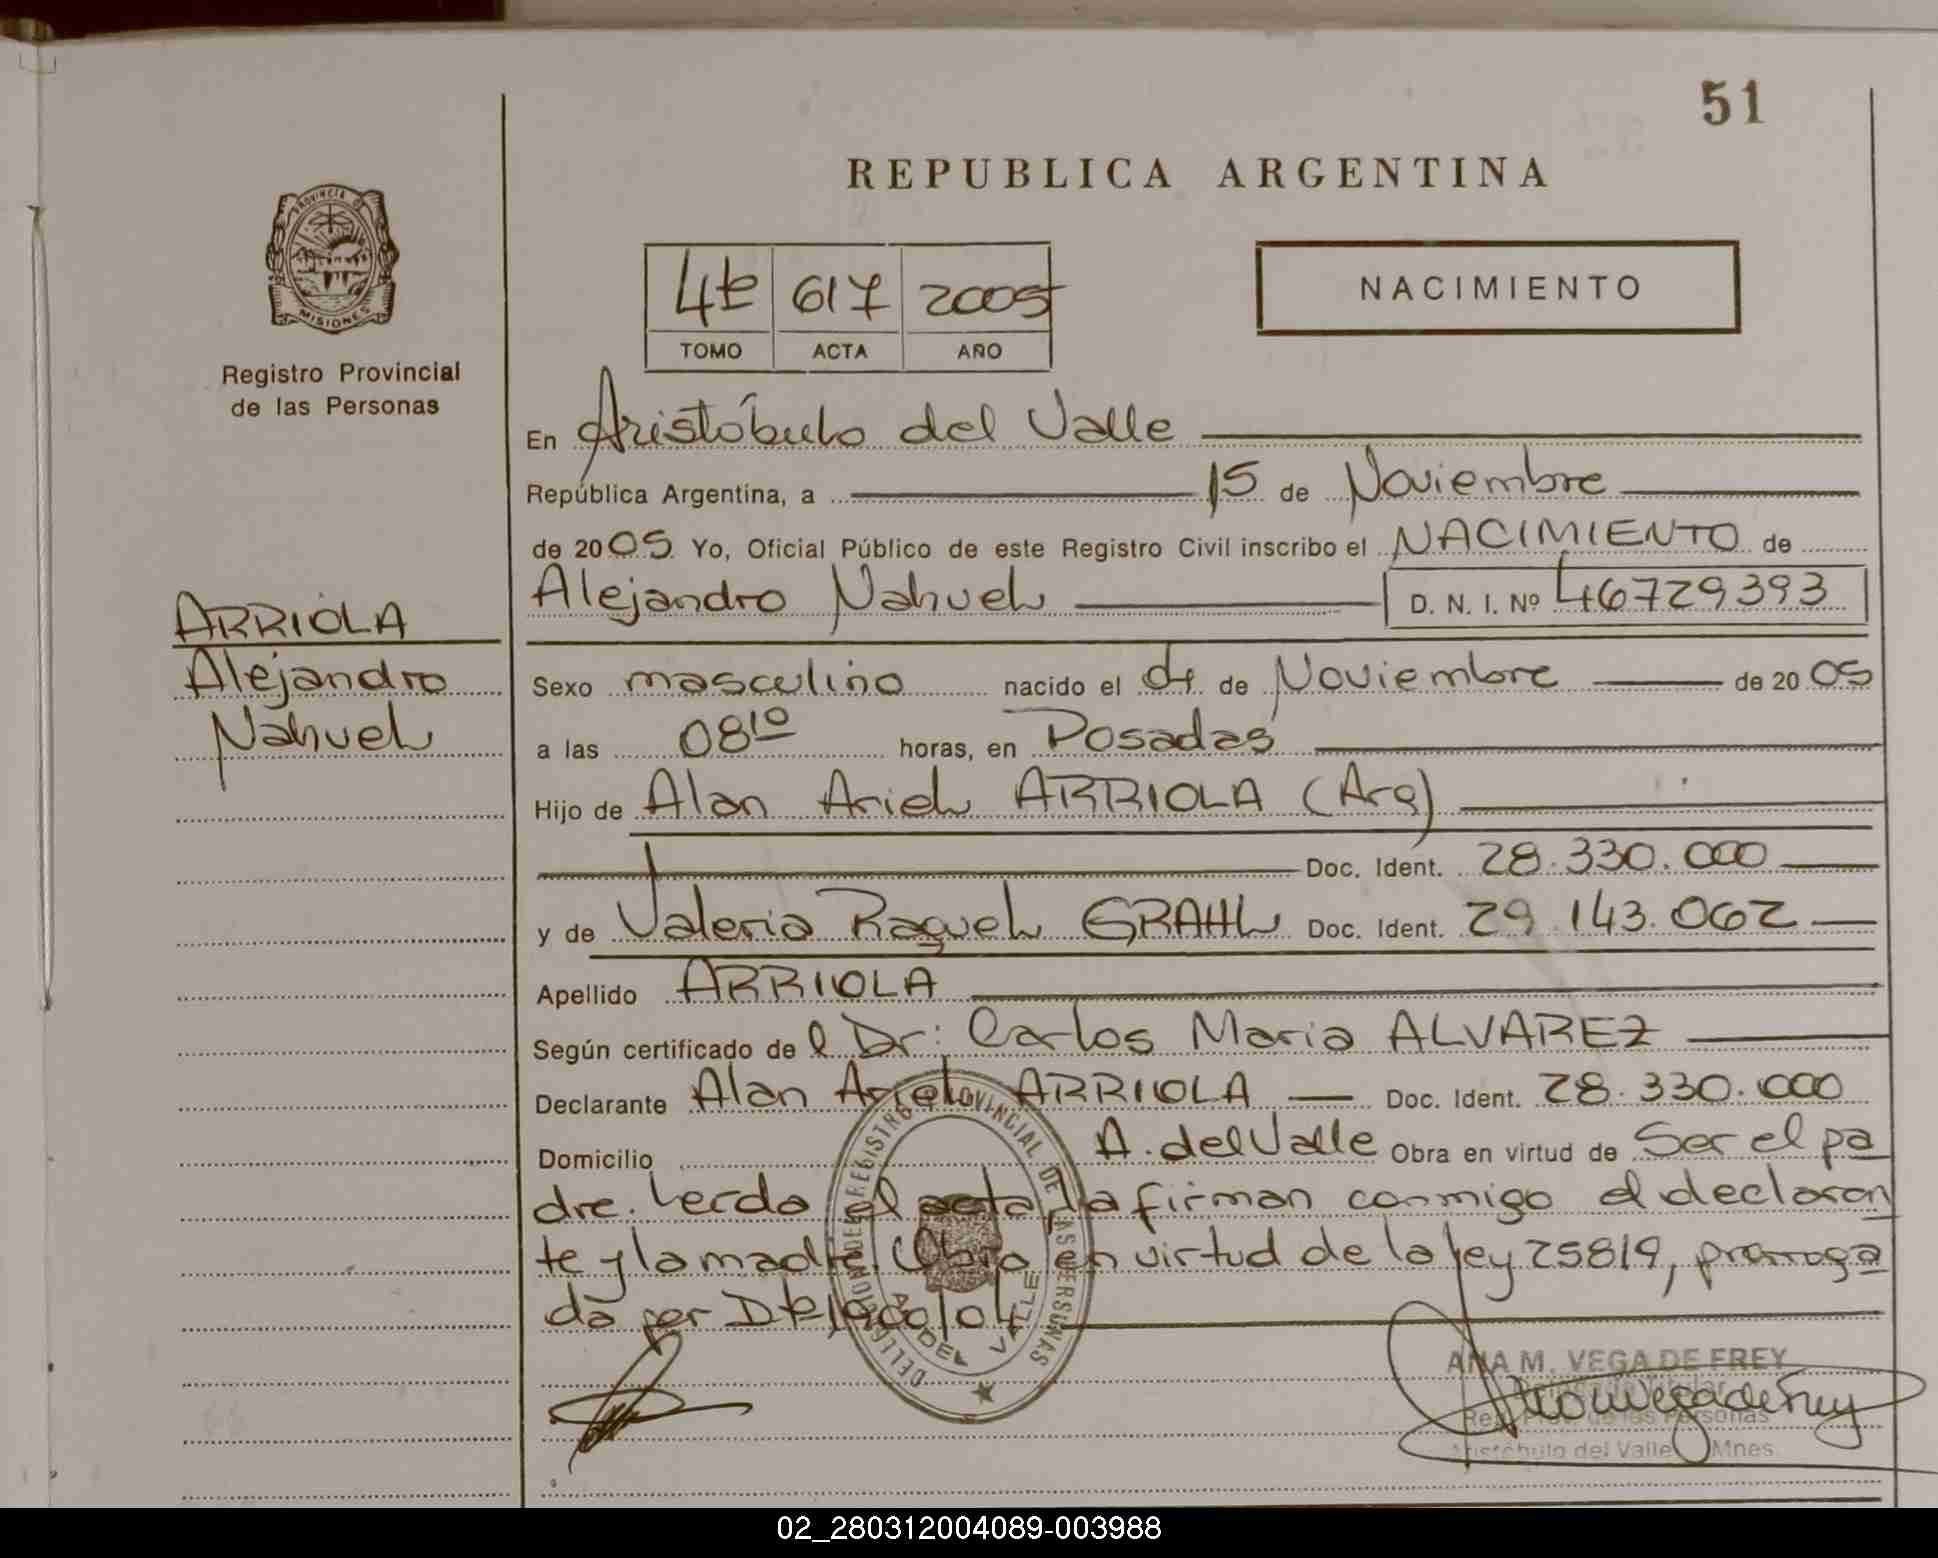 51
REPUBLICA ARGENTINA
PROVINCIA DE
MISIONES
Registro Provincial
de las Personas
4to 617 2005
TOMO ACTA AÑO
NACIMIENTO
En Aristóbulo del Valle
República Argentina, a 15 de Noviembre
de 2005 Yo, Oficial Público de este Registro Civil inscribo el NACIMIENTO de
Alejandro Nahuel D. N. I. Nº 46729393
ARRIOLA
Alejandro
Nahuel
Sexo masculino nacido el 04 de Noviembre de 2005
a las 08 10 horas, en Posadas
Hijo de Alan Ariel ARRIOLA (Arg)
Doc. Ident. 28.330.000
y de Valeria Raquel GRAHL Doc. Ident. 29.143.062
Apellido ARRIOLA
Según certificado de l Dr: Carlos Maria ALVAREZ
Declarante Alan Ariel ARRIOLA Doc. Ident. 28.330.000
Domicilio A. del Valle Obra en virtud de Ser el pa
dre. Leida el acta la firman conmigo el declaran
te y la madre. Obra en virtud de la ley 25819, prorroga
da por
REGISTRO PROVINCIAL DE LAS PERSONAS
A. DEL VALLE
ANA M. VEGA DE FREY
Reg. Prov. de las Personas
Aristóbulo del Valle Mnes.
02_280312004089-003988